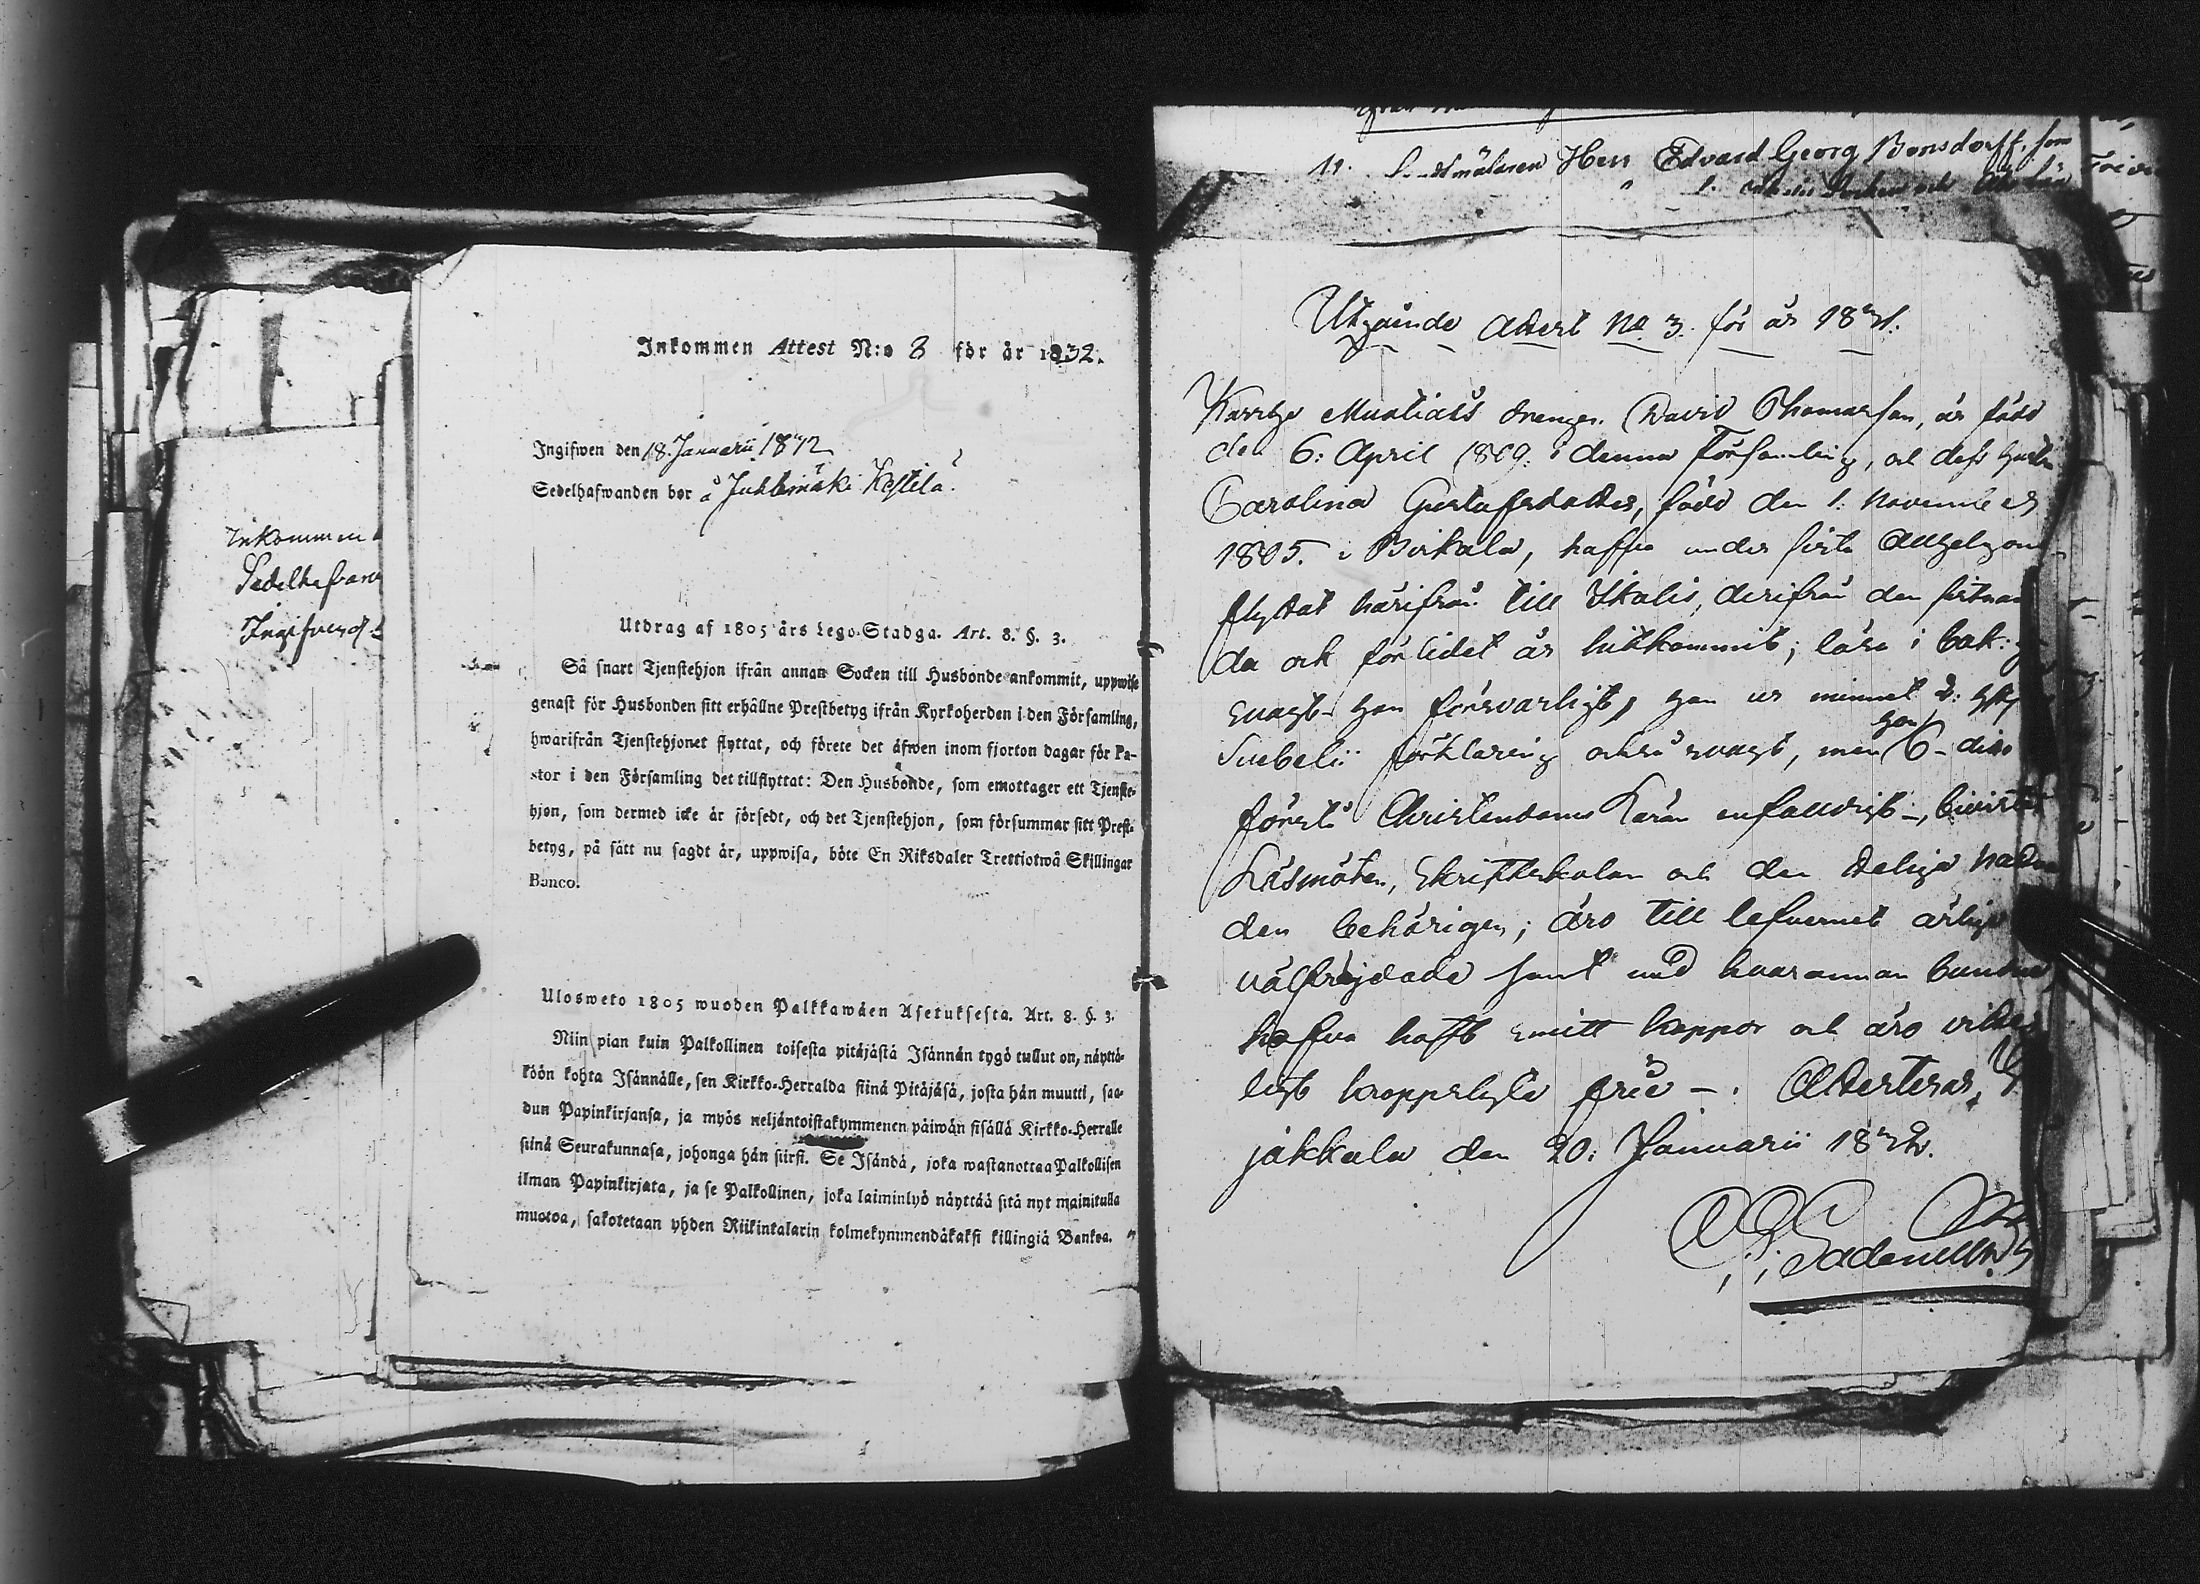 Inkommen Attest N:o 8 för år 1832.
Ingifwen den 18. Januarii 1842
Sedelhafwanden bor å Juhtimäki Kestilä.
Utdrag af 1805 års Lego-Stadga. Art. 8. §. 3.
Så snart Tjenstehjon ifrån annan Socken till Husbonde ankommit, uppwise
genast för Husbonden sitt erhållne Prestbetyg ifrån Kyrkoherden i den Församling,
hwarifrån Tjenstehjonet flyttat, och förete det äfwen inom fjorton dagar för Pa-
stor i den Församling det tillflyttat: Den Husbonde, som emottager ett Tjenste-
hjon, som dermed icke är försedt, och det Tjenstehjon, som försummar sitt Prest-
betyg, på sätt nu sagdt är, uppwisa, böte En Riksdaler Trettiotwå Skillingar
Banco.
Ulosweto 1805 wuoden Palkkawäen Asetuksesta. Art. 8. §. 3.
Niin pian kuin Palkollinen toisesta pitäjästä Isännän tygö tullut on, näyttä-
köön kohta Isännälle, sen Kirkko-Herralda siinä Pitäjäsä, josta hän muutti, saa-
dun Papinkirjansa, ja myös neljäntoistakymmenen päiwän sisällä Kirkko-Herralle
siinä Seurakunnasa, johonga hän siirsi. Se Isändä, joka wastanottaa Palkollisen
ilman Papinkirjata, ja se Palkollinen, joka laiminlyö näyttää sitä nyt mainitulla
muotoa, sakotetaan yhden Riikinkalarin kolmekymmendäkaksi killingiä Bankoa.
Inkommen
Sedelhafvan
Ingifven d
11. Herr Edvard Georg Bonsdorff, som
Utgående Attest No 3. för år
drängen David Thomasson, är född
den 6: April 1809. i denna Församling, och dess hustru
Carolina Gustafsdotter, född den 1. November
1805. i Birkala, hafva under sista
flyttat härifrån till Ikalis, derifrån den
da och förlidet år hitkommit; läsa i bok:
svagt han försvarligt, hon ur minnet
Suebelii förklaring också svagt, men hon 6 - dito
förstå Christendoms Läran enfaldigt -, bivistat
Läsmöten, Skriftskolan och den Heliga
den behörigen; äro till lefvernet ärliga
välfrejdade samt med hvarannan
hafva haft smitt koppor och äro
ligt kroppslyte frie - : Attesterar,
jakkala den 20. Januarii